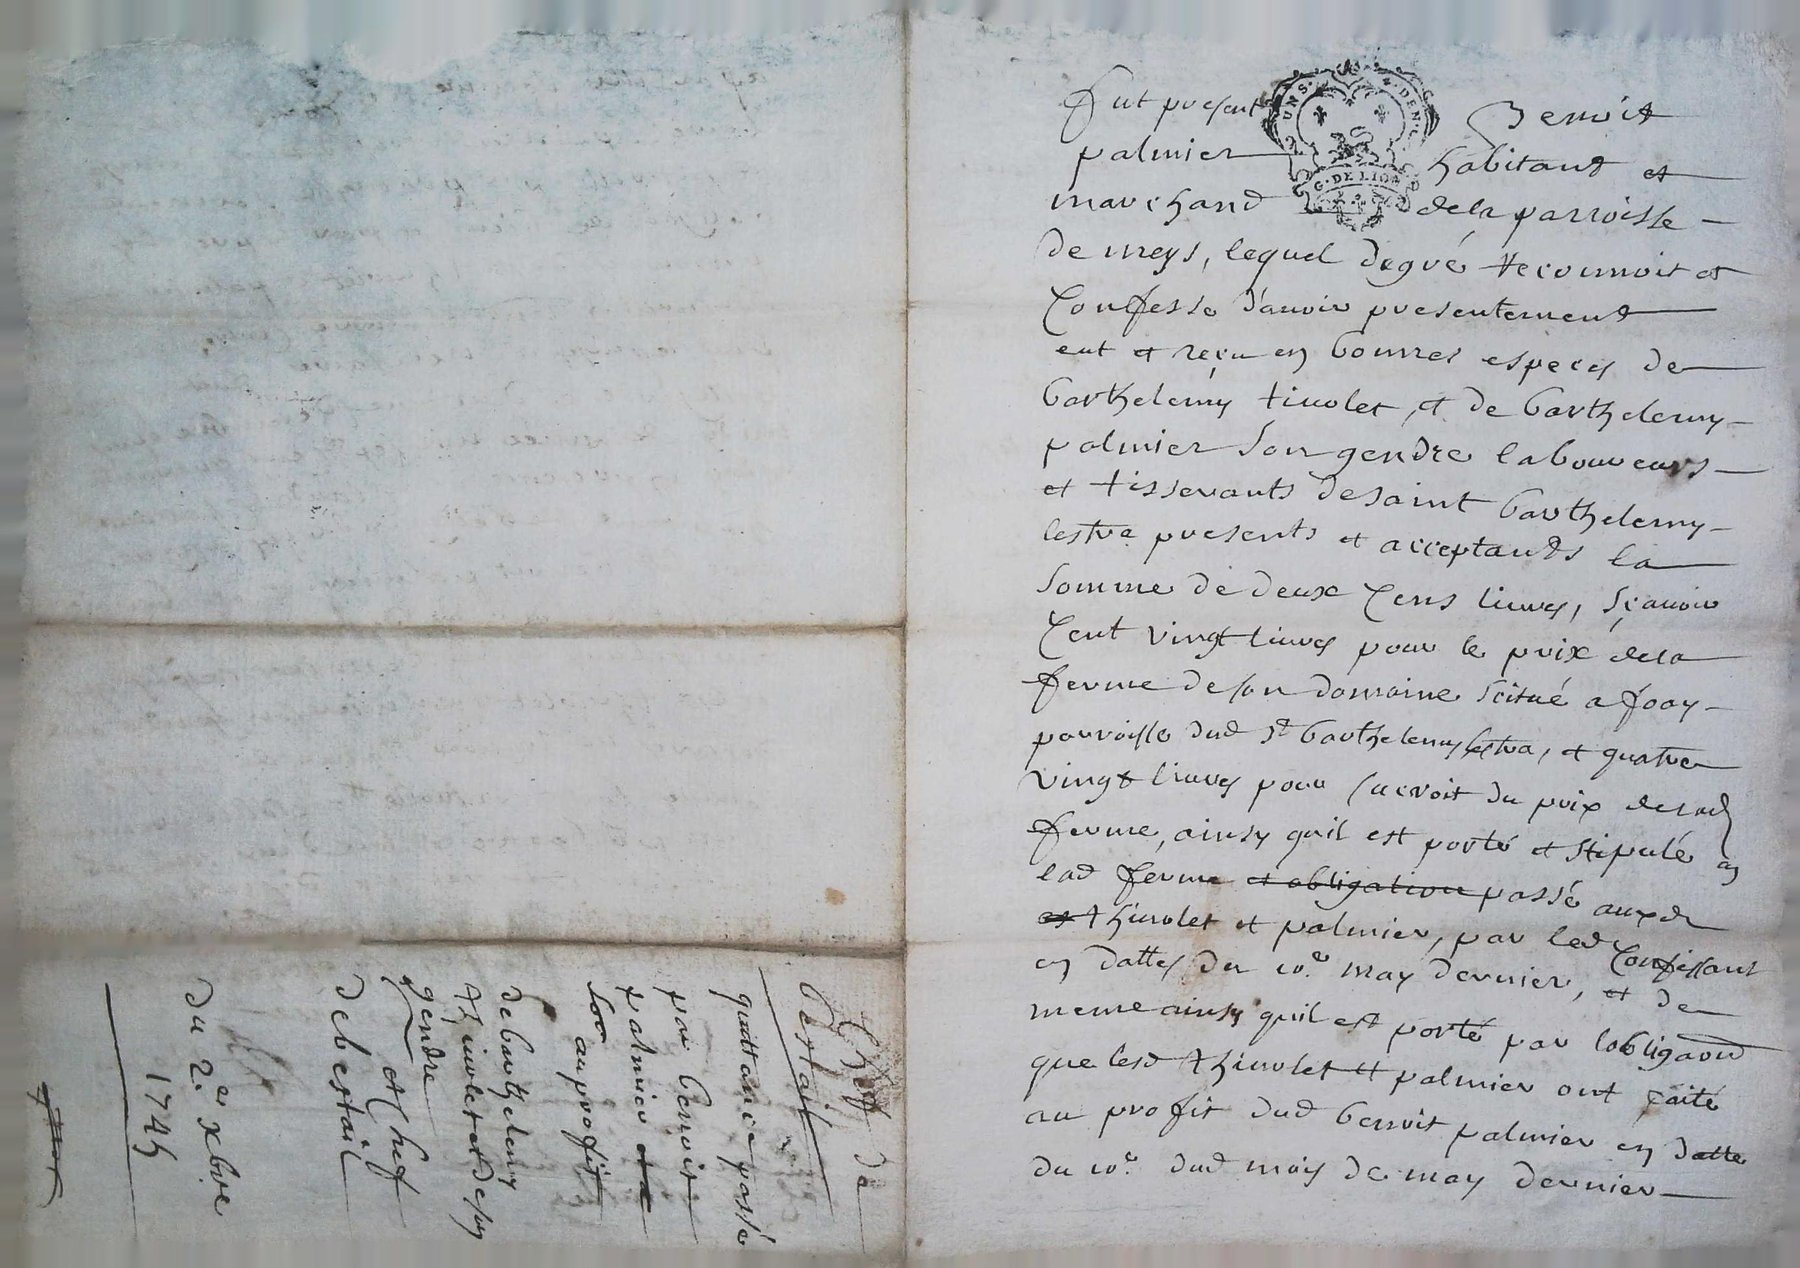 Fut present Benoit
palmier habitant et
marchand dela parroisse
de meys, lequel degré reconnoit et
Confesse d'avoir presentement
eut et reçu en bonnes especes de
barthelemy tivolet, et de barthelemy
palmier son gendre laboureurs
et tisserants de saint barthelemy
lestra presents et acceptants la
somme de deux Cens livres, sçavoir
Cent vingt livres pour le prix dela
ferme de son domaine scitué a foay
parroisse dud st barthelemy lestra, et quatre
vingt livres pour sucroit du prix delad
ferme, ainsy quil est porté et stipulé en
lad ferme et obligation passé auxd
et thivolet et palmier, par led Confessant
en dattes du 10e may dernier, et de
meme ainsy quil est porté par lobligaon
que lesd thivolet et palmier ont faite
au profit dud benoit palmier en datte
du 10e dud mois de may dernier
UNS. DEN.
G. DE LION
Chef de
bestail
quittance passé
par benoit
palmier
au profit
de barthelemy
thivolet et de son
gendre
et Chef
de bestail
du 2er xbre
1745